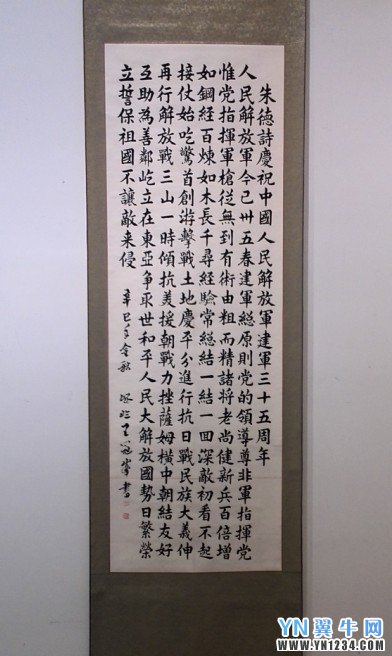 朱德詩慶祝中國人民解放軍建軍三十五周年
人民解放軍今已卅五春建軍總原則党的領導尊非軍指揮党
惟党指揮軍槍從無到有術由粗而精諸將老尚健新兵百倍增
如鋼經百煉如木長千尋經驗常總結一結一回深敵初看不起
接仗始吃驚首創游擊戰土地慶平分進行抗日戰民族大義伸
再行解放戰三山一時傾抗美援朝戰力挫薩姆橫中朝結友好
互助為善鄰屹立在東亞争取世和平人民大解放國勢日繁榮
立誓保祖國不讓敵来侵 辛巳年金秋 書
YN翼牛网
WWW.YN1234.COM